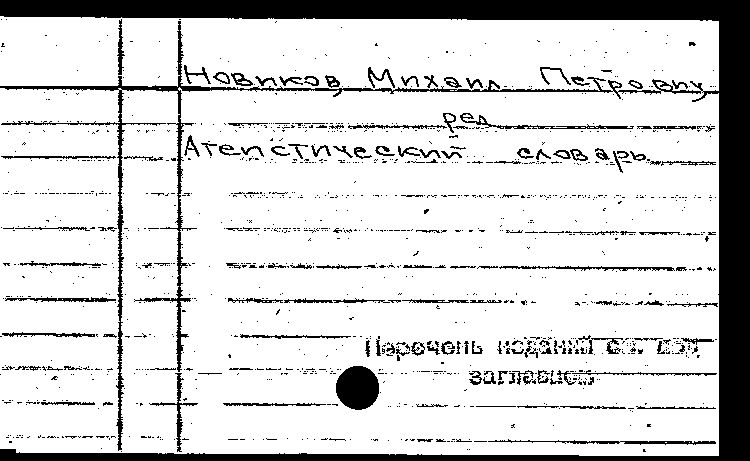 Новиков, Михаил Петрович,
ред
Атеистический словарь
Перечень изданий см. под
заглавием